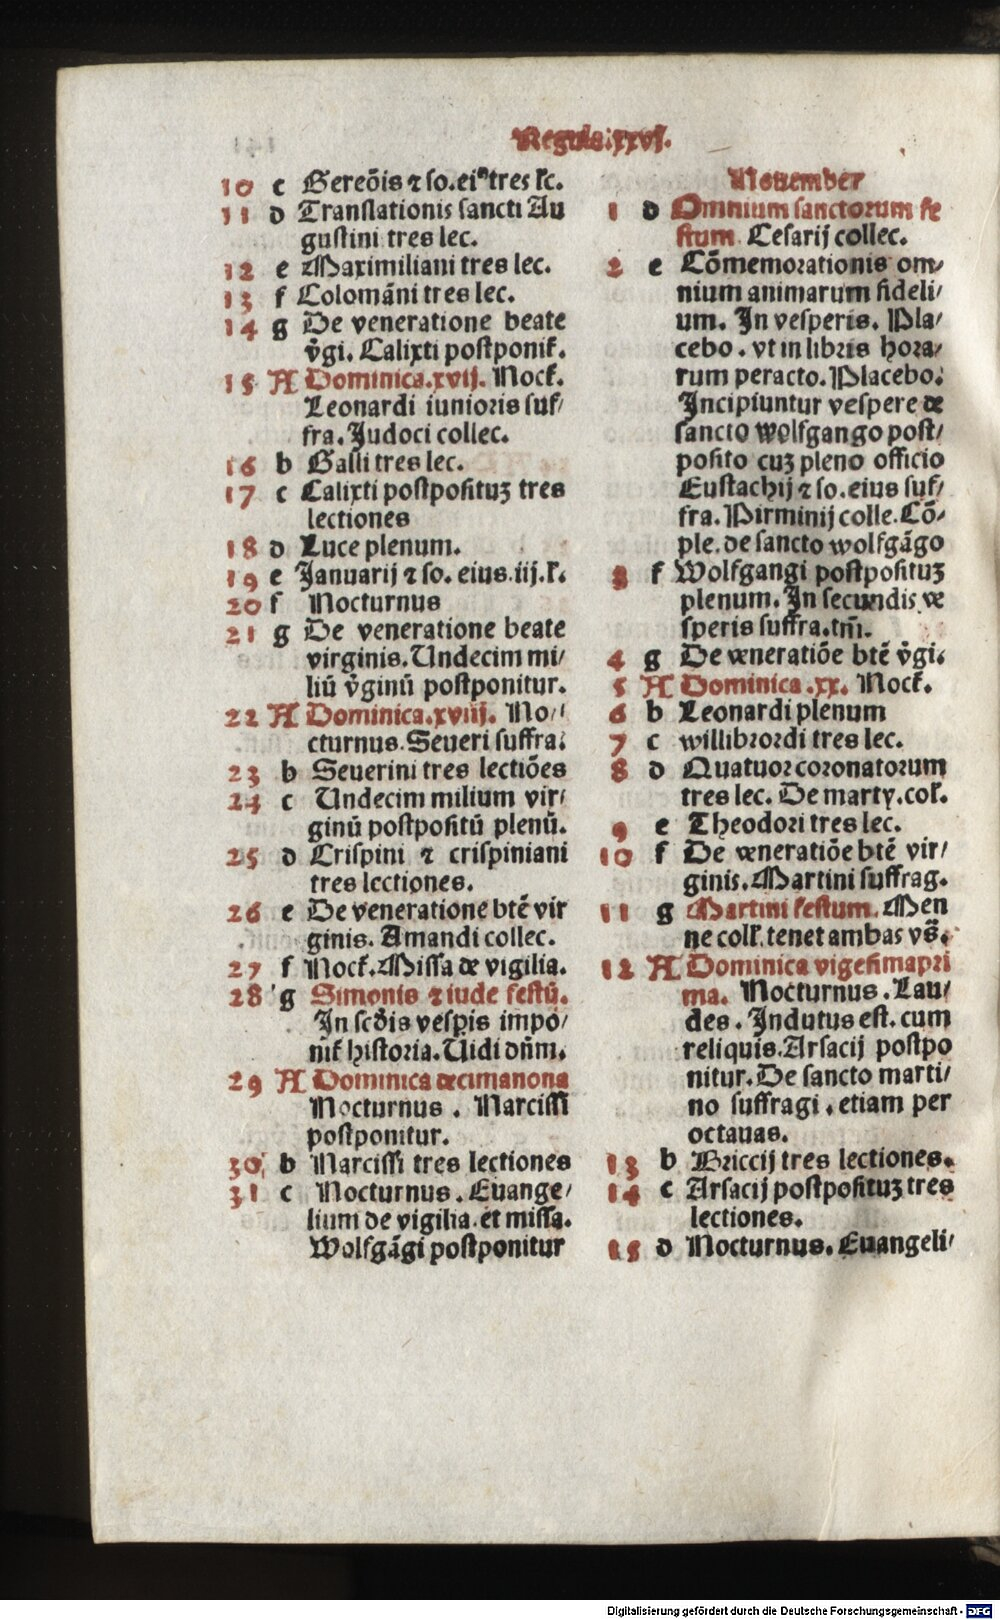 Regula.xxvj.
10 c Gereōis ⁊ so.ei⁹ tres lc̄.
11 d Translationis sancti Au
gustini tres lec.
12 e Maximiliani tres lec.
13 f Colomāni tres lec.
14 g De veneratione beate
v̄gi. Calixti postponit̄.
15 A Dominica.xvij. Noct̄.
Leonardi iunioris suf/
fra. Judoci collec.
16 b Galli tres lec.
17 c Calixti postposituꝫ tres
lectiones
18 d Luce plenum.
19 e Januarij ⁊ so. eius.iij.l̄.
20 f Nocturnus
21 g De veneratione beate
virginis. Undecim mi/
liū v̄ginū postponitur.
22 A Dominica.xviij. No/
cturnus. Seueri suffra.
23 b Seuerini tres lectiōes
24 c Undecim milium vir/
ginū postpositū plenū.
25 d Crispini ⁊ crispiniani
tres lectiones.
26 e De veneratione btē vir
ginis. Amandi collec.
27 f Noct̄. Missa de vigilia.
28 g Simonis ⁊ iude festū.
In scd̄is vesp̄is impo/
nit̄ historia. Uidi dn̄m.
29 A Dominica decimanona
Nocturnus. Narcissi
postponitur.
30 b Narcissi tres lectiones
31 c Nocturnus. Euange/
lium de vigilia. et missa.
Wolfgāgi postponitur
Nouember
1 d Omnium sanctorum fe
stum. Cesarij collec.
2 e Cōmemorationis om/
nium animarum fideli/
um. In vesperis. Pla/
cebo. vt in libris hora/
rum peracto. Placebo.
Incipiuntur vespere de
sancto wolfgango post/
posito cuꝫ pleno officio
Eustachij ⁊ so. eius suf/
fra. Pirminij colle. Cō/
ple. de sancto wolfgāgo
3 f Wolfgangi postposituꝫ
plenum. In secundis ve
speris suffra. tm̄.
4 g De veneratiōe btē v̄gi.
5 A Dominica.xx. Noct̄.
6 b Leonardi plenum
7 c willibrordi tres lec.
8 d Quatuor coronatorum
tres lec. De marty. col̄.
9 e Theodori tres lec.
10 f De veneratiōe btē vir/
ginis. Martini suffrag.
11 g Martini festum. Men
ne coll̄. tenet ambas vs̄.
12 A Dominica vigesimapri
ma. Nocturnus. Lau/
des. Indutus est. cum
reliquis. Arsacij postpo
nitur. De sancto marti/
no suffragi. etiam per
octauas.
13 b Briccij tres lectiones.
14 c Arsacij postposituꝫ tres
lectiones.
15 d Nocturnus. Euangeli/
Digitalisierung gefördert durch die Deutsche Forschungsgemeinschaft - DFG